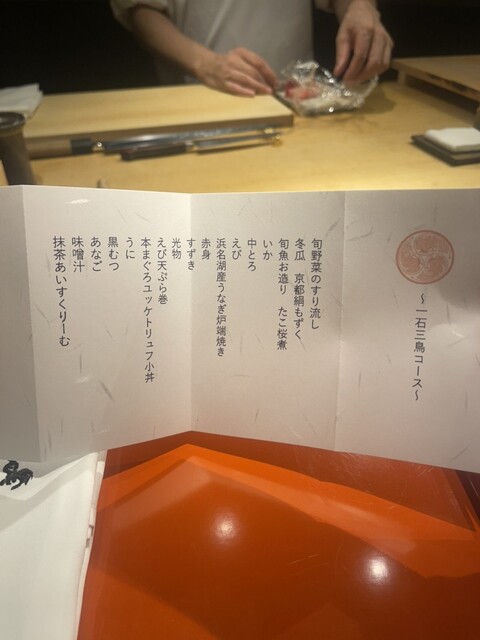 ～一石三鳥コース～
旬野菜のすり流し
冬瓜　京都絹もずく
旬魚お造り　たこ桜煮
いか
中とろ
えび
浜名湖産うなぎ炉端焼き
赤身
すずき
光物
えび天ぷら巻
本まぐろユッケトリュフ小丼
うに
黒むつ
あなご
味噌汁
抹茶あいすくりーむ